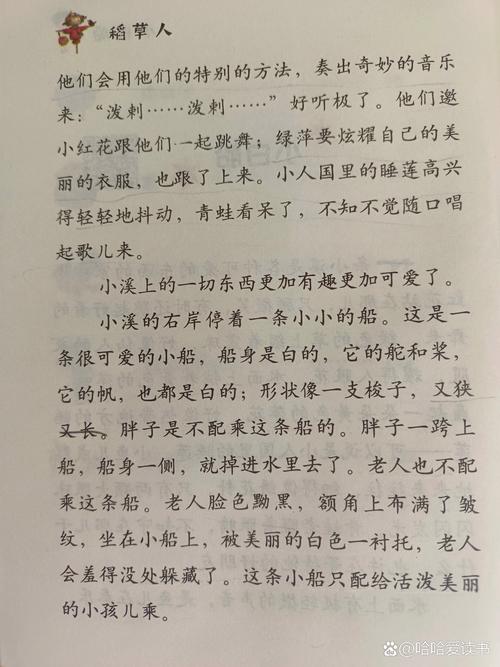 稻草人
他们会用他们的特别的方法，奏出奇妙的音乐
来：“泼刺……泼刺……”好听极了。他们邀
小红花跟他们一起跳舞；绿萍要炫耀自己的美
丽的衣服，也跟了上来。小人国里的睡莲高兴
得轻轻地抖动，青蛙看呆了，不知不觉随口唱
起歌儿来。
小溪上的一切东西更加有趣更加可爱了。
小溪的右岸停着一条小小的船。这是一
条很可爱的小船，船身是白的，它的舵和桨，
它的帆，也都是白的；形状像一支梭子，又狭
又长。胖子是不配乘这条船的。胖子一跨上
船，船身一侧，就掉进水里去了。老人也不配
乘这条船。老人脸色黝黑，额角上布满了皱
纹，坐在小船上，被美丽的白色一衬托，老人
会羞得没处躲藏了。这条小船只配给活泼美丽
的小孩儿乘。
@哈哈爱读书